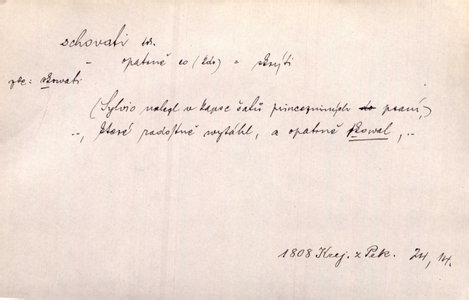 schovati
- opatrně co (kdo) = skrýti
zde: skowati
(Sylvio nalezl v kapse šatů princezniných do psaní,)
.., které radostně wytáhl, a opatrně skowal, ..
1808 Krej. z Pek. 24, 14.